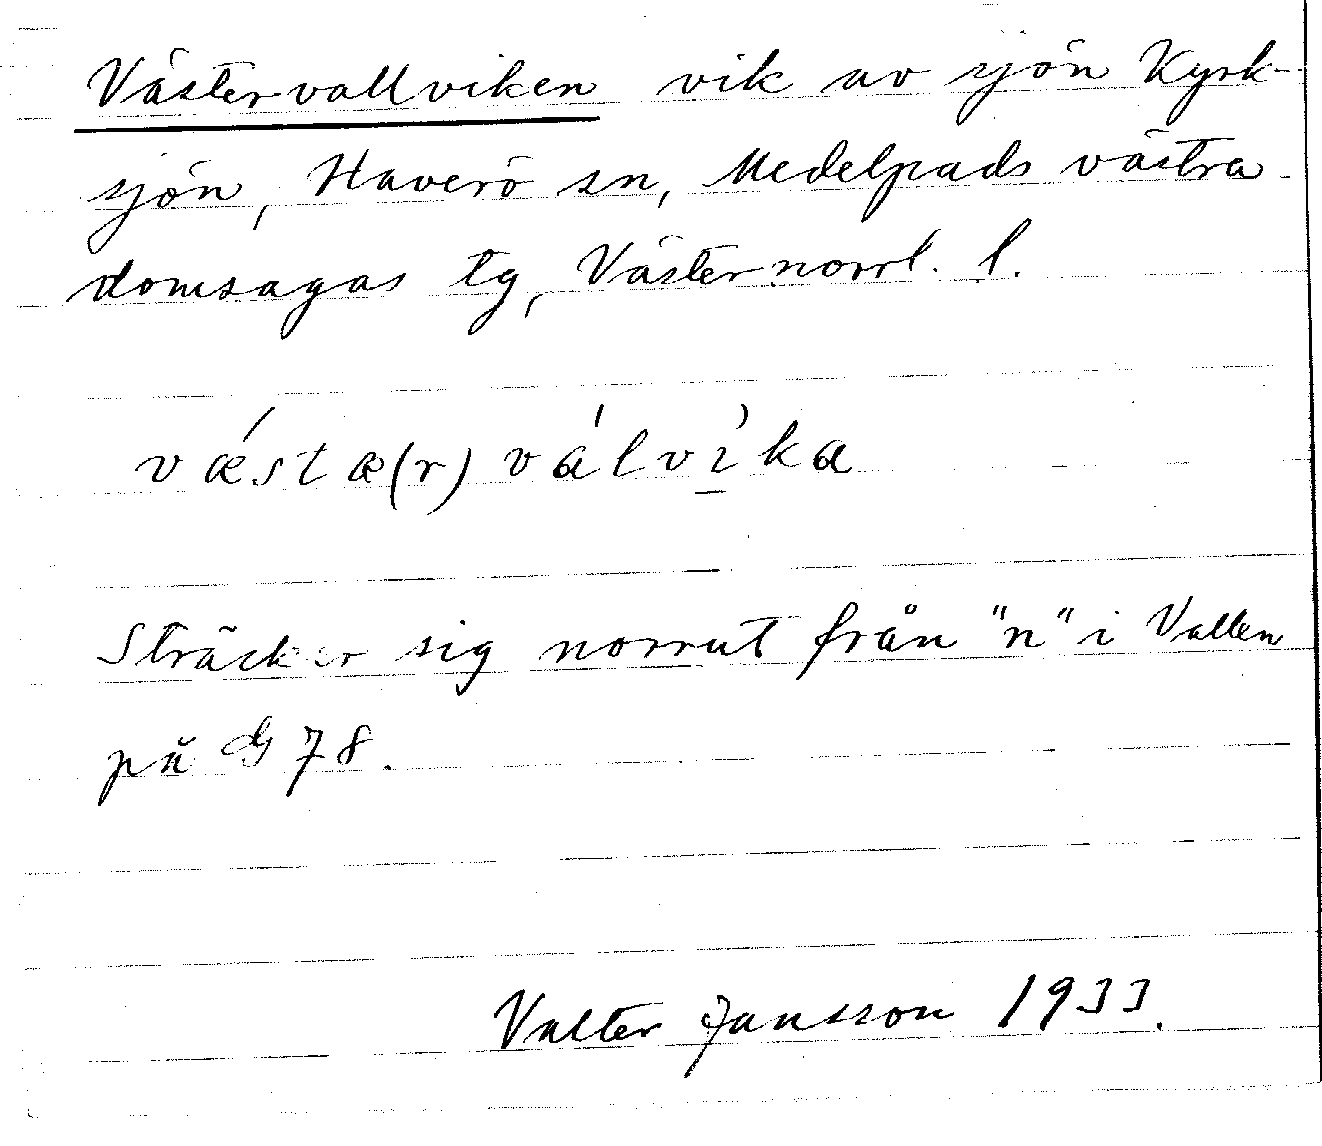 Västervallviken vik av sjön Kyrk-
sjön, Haverö sn, Medelpads västra
domsagas tg, Västernorrl. l.
vǽstæ(r)válvì̱ka
Sträcker sig norrut från "n" i Vallen
på G 78.
Valter Jansson 1933.